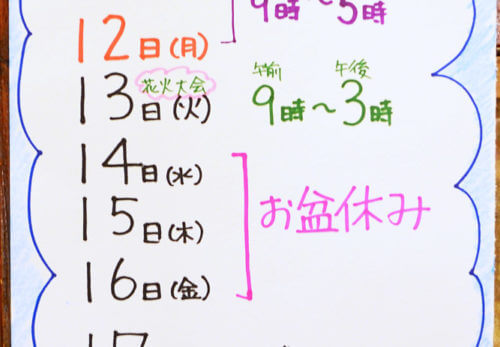 9時〜5時
12日(月)
花火大会 午前 午後
13日(火) 9時〜3時
14日(水)
15日(木) お盆休み
16日(金)
17